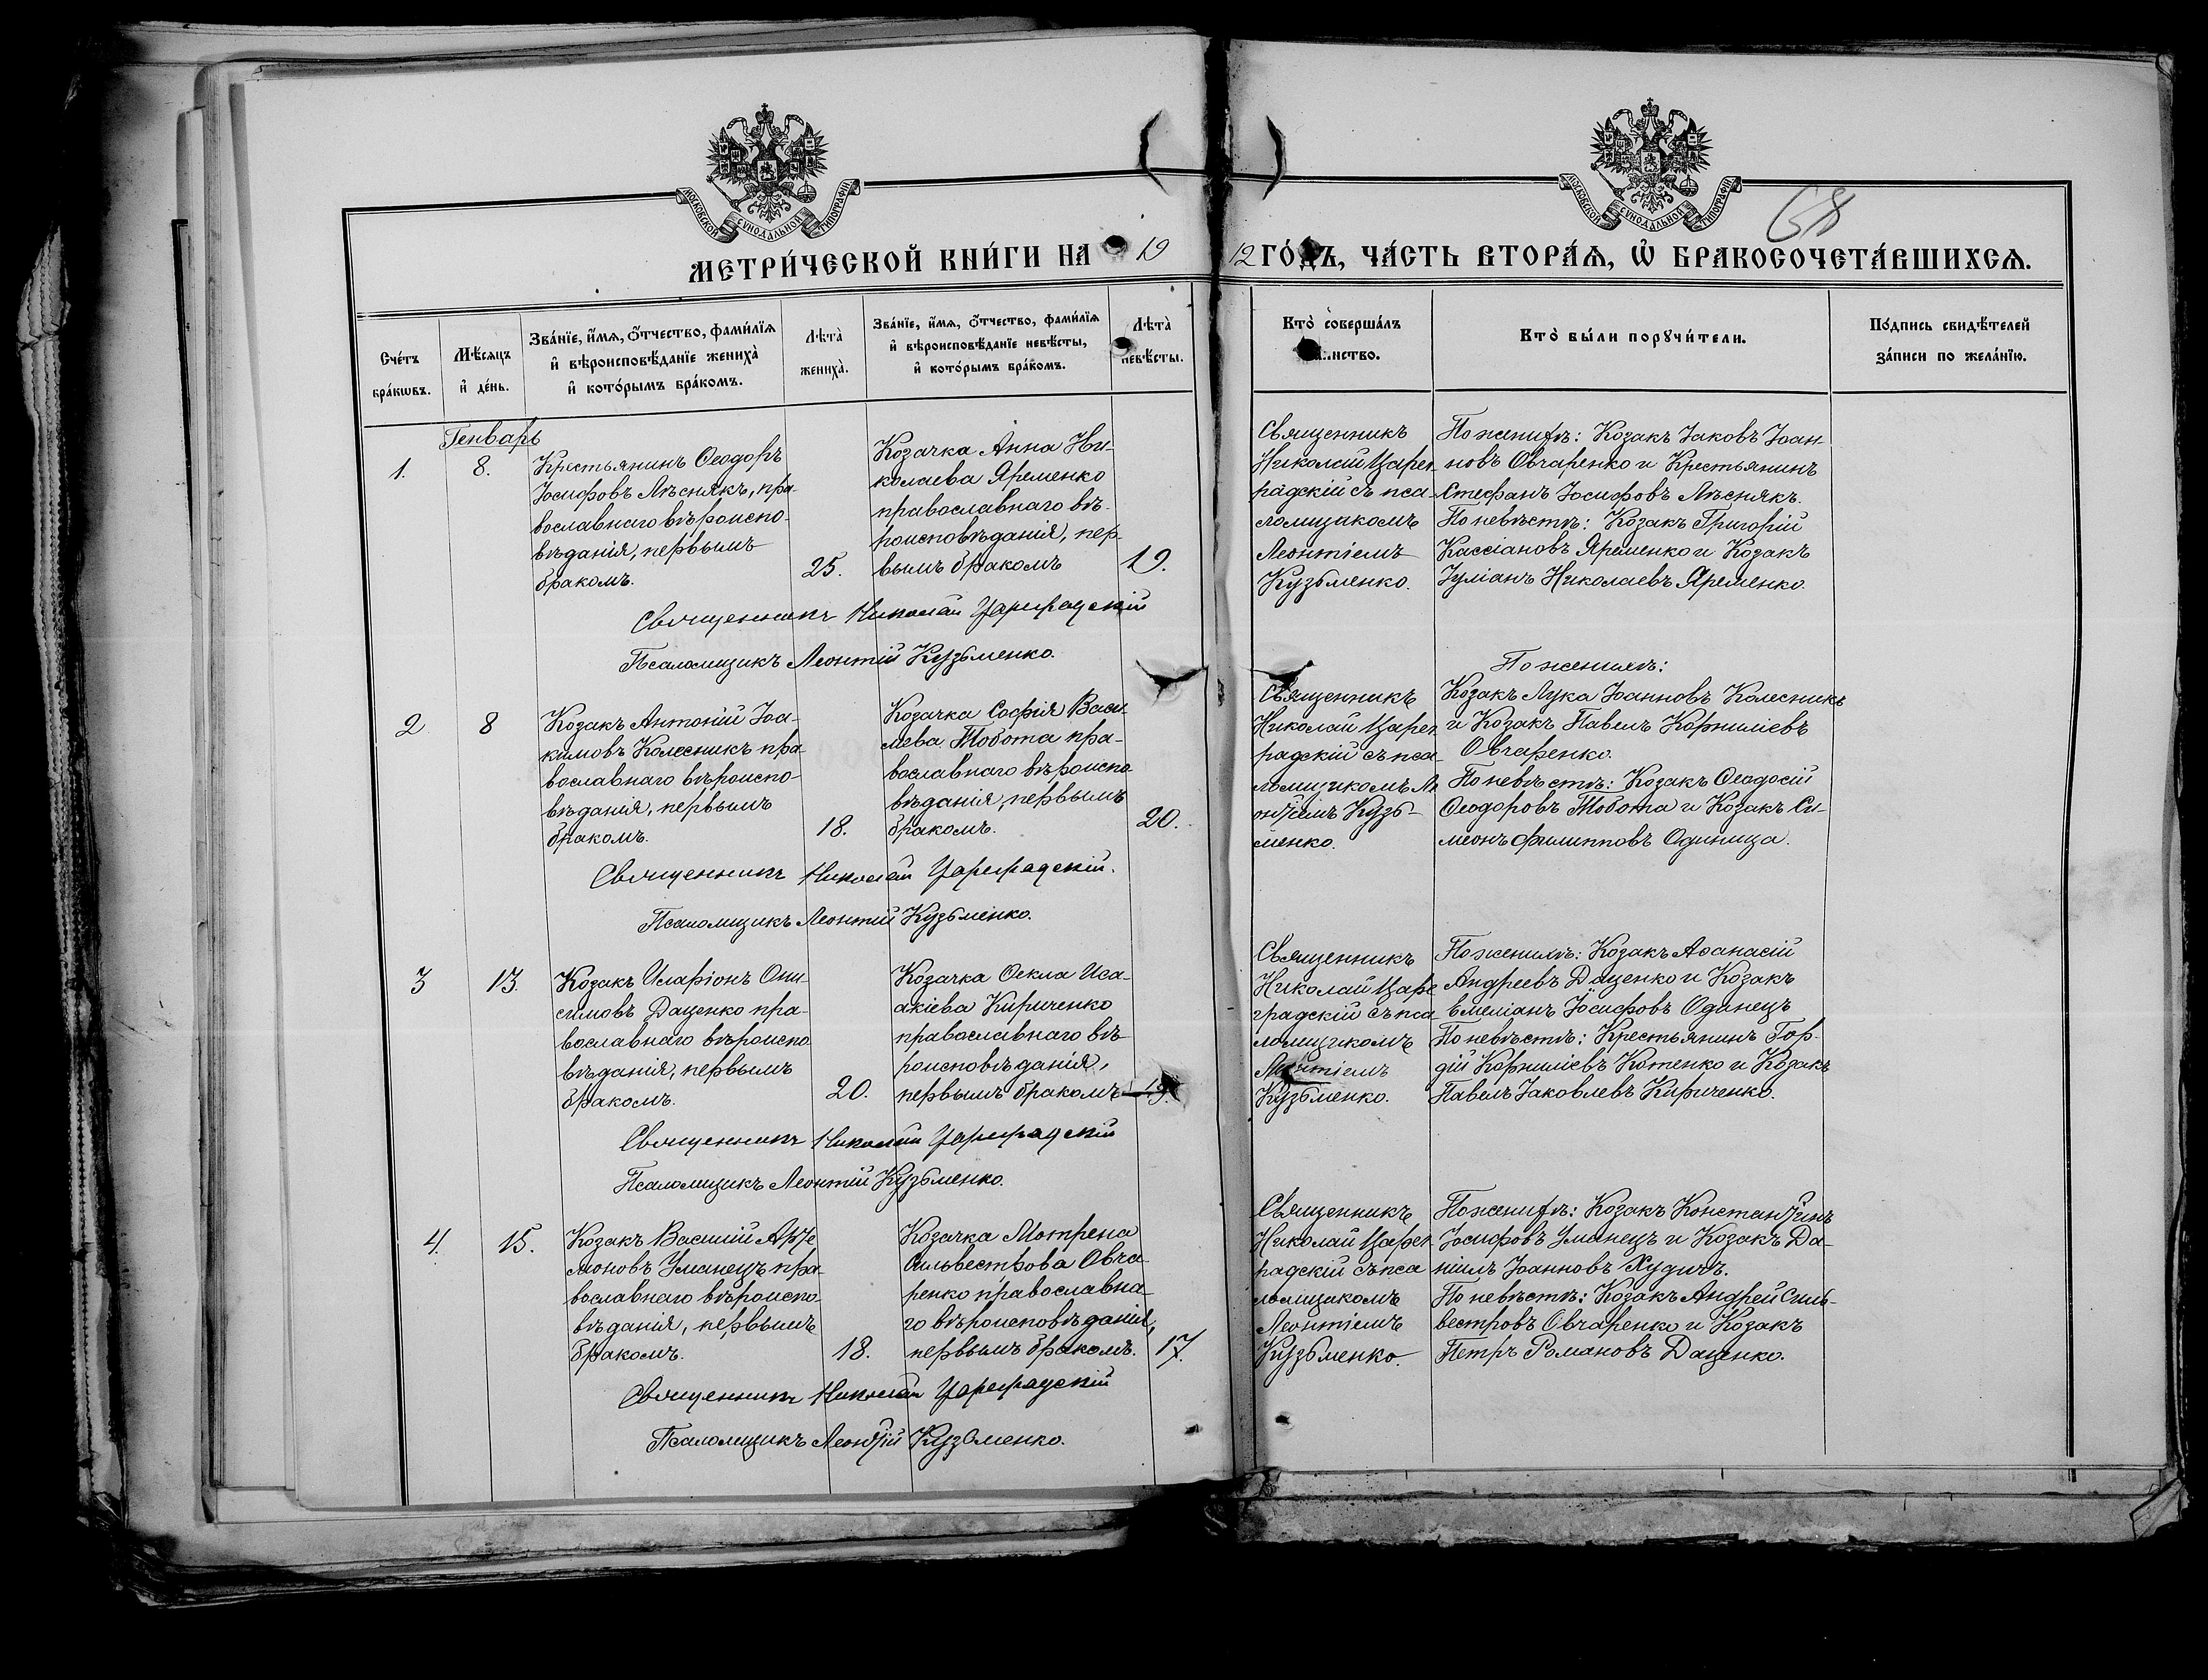 МОСКОВСКОЙ СѴНОДАЛЬНОЙ ТИПОГРАФІИ
МОСКОВСКОЙ СѴНОДАЛЬНОЙ ТИПОГРАФІИ
68
МЕТРИ́ЧЕСКОЙ КНИ́ГИ НА 19 12 ГО́ДЪ, ЧА́СТЬ ВТОРА́Я, Ѡ БРАКОСОЧЕТА́ВШИХСЯ.
Сче́тъ бра́кѡвъ.
Мѣ́сяцъ и҆ де́нь.
Зва́нїе, и҆́мя, ѻ҆́тчество, фами́лїя
и҆ вѣроисповѣ́данїе жениха̀
и҆ кото́рымъ бра́комъ.
Лѣта̀ жениха̀.
Зва́нїе, и҆́мя, ѻ҆́тчество, фами́лїя
и҆ вѣроисповѣ́данїе невѣ́сты,
и҆ кото́рымъ бра́комъ.
Лѣта̀ невѣ́сты.
Кто̀ соверша́лъ
та́инство.
Кто̀ бы́ли порꙋчи́тели.
По́дпись свидѣ́телей
за́писи по жела́нїю.
Генварь
1.
8.
Крестьянинъ Ѳеодоръ
Іосифовъ Лѣснякъ, пра-
вославнаго вѣроиспо-
вѣданія, первымъ
бракомъ.
25.
Козачка Анна Ни-
колаева Яременко
православнаго вѣ-
роисповѣданія, пер-
вымъ бракомъ
19.
Священникъ
Николай Царег
радскій съ пса-
ломщикомъ
Леонтіемъ
Кузьменко.
По женихѣ: Козакъ Іаковъ Іоан-
новъ Овчаренко и Крестьянинъ
Стефанъ Іосифовъ Лѣснякъ.
По невѣстѣ: Козакъ Григорій
Кассіановъ Яременко и Козакъ
Іуліанъ Николаевъ Яременко.
Священникъ Николай Цареградскій
Псаломщикъ Леонтій Кузьменко.
2
8
Козакъ Антоній Іоа-
кимовъ Колесникъ пра
вославнаго вѣроиспо-
вѣданія, первымъ
бракомъ.
18.
Козачка Софія Васи-
лиева Тобота пра-
вославнаго вѣроиспо
вѣданія, первымъ
бракомъ.
20.
Священникъ
Николай Царег
радскій съ пса-
ломщикомъ Ле
онтіемъ Кузь-
менко.
По женихѣ:
Козакъ Лука Іоанновъ Колесникъ
и Козакъ Павелъ Корниліевъ
Овчаренко.
По невѣстѣ: Козакъ Ѳеодосій
Ѳеодоровъ Тобота и Козакъ Си-
меонъ Филипповъ Одиница.
Священникъ Николай Цареградскій.
Псаломщикъ Леонтій Кузьменко.
3
13.
Козакъ Иларіонъ Они-
симовъ Даценко пра-
вославнаго вѣроиспо
вѣданія, первымъ
бракомъ.
20.
Козачка Ѳекла Иса-
акіева Кириченко
православнаго вѣ
роисповѣданія,
первымъ бракомъ
19.
Священникъ
Николай Царе
градскій съ пса-
ломщикомъ
Леонтіемъ
Кузьменко.
По женихѣ: Козакъ Аѳанасій
Андреевъ Даценко и Козакъ
Емеліанъ Іосифовъ Одинецъ
По невѣстѣ: Крестьянинъ Гор-
дій Корниліевъ Котенко и Козакъ
Павелъ Іаковлевъ Кириченко.
Священникъ Николай Цареградскій
Псаломщикъ Леонтій Кузьменко.
4.
15.
Козакъ Василій Арте
моновъ Уманецъ пра-
вославнаго вѣроиспо-
вѣданія, первымъ
бракомъ.
18.
Козачка Мотрена
Сильвестрова Овча-
ренко православна-
го вѣроисповѣданія,
первымъ бракомъ.
17.
Священникъ
Николай Царег
радскій съ пса
ломщикомъ
Леонтіемъ
Кузьменко.
По женихѣ: Козакъ Константинъ
Іосифовъ Уманецъ и Козакъ Да-
ніилъ Іоанновъ Худичъ.
По невѣстѣ: Козакъ Андрей Силь-
вестровъ Овчаренко и Козакъ
Петръ Романовъ Даценко.
Священникъ Николай Цареградскій
Псаломщикъ Леонтій Кузьменко.